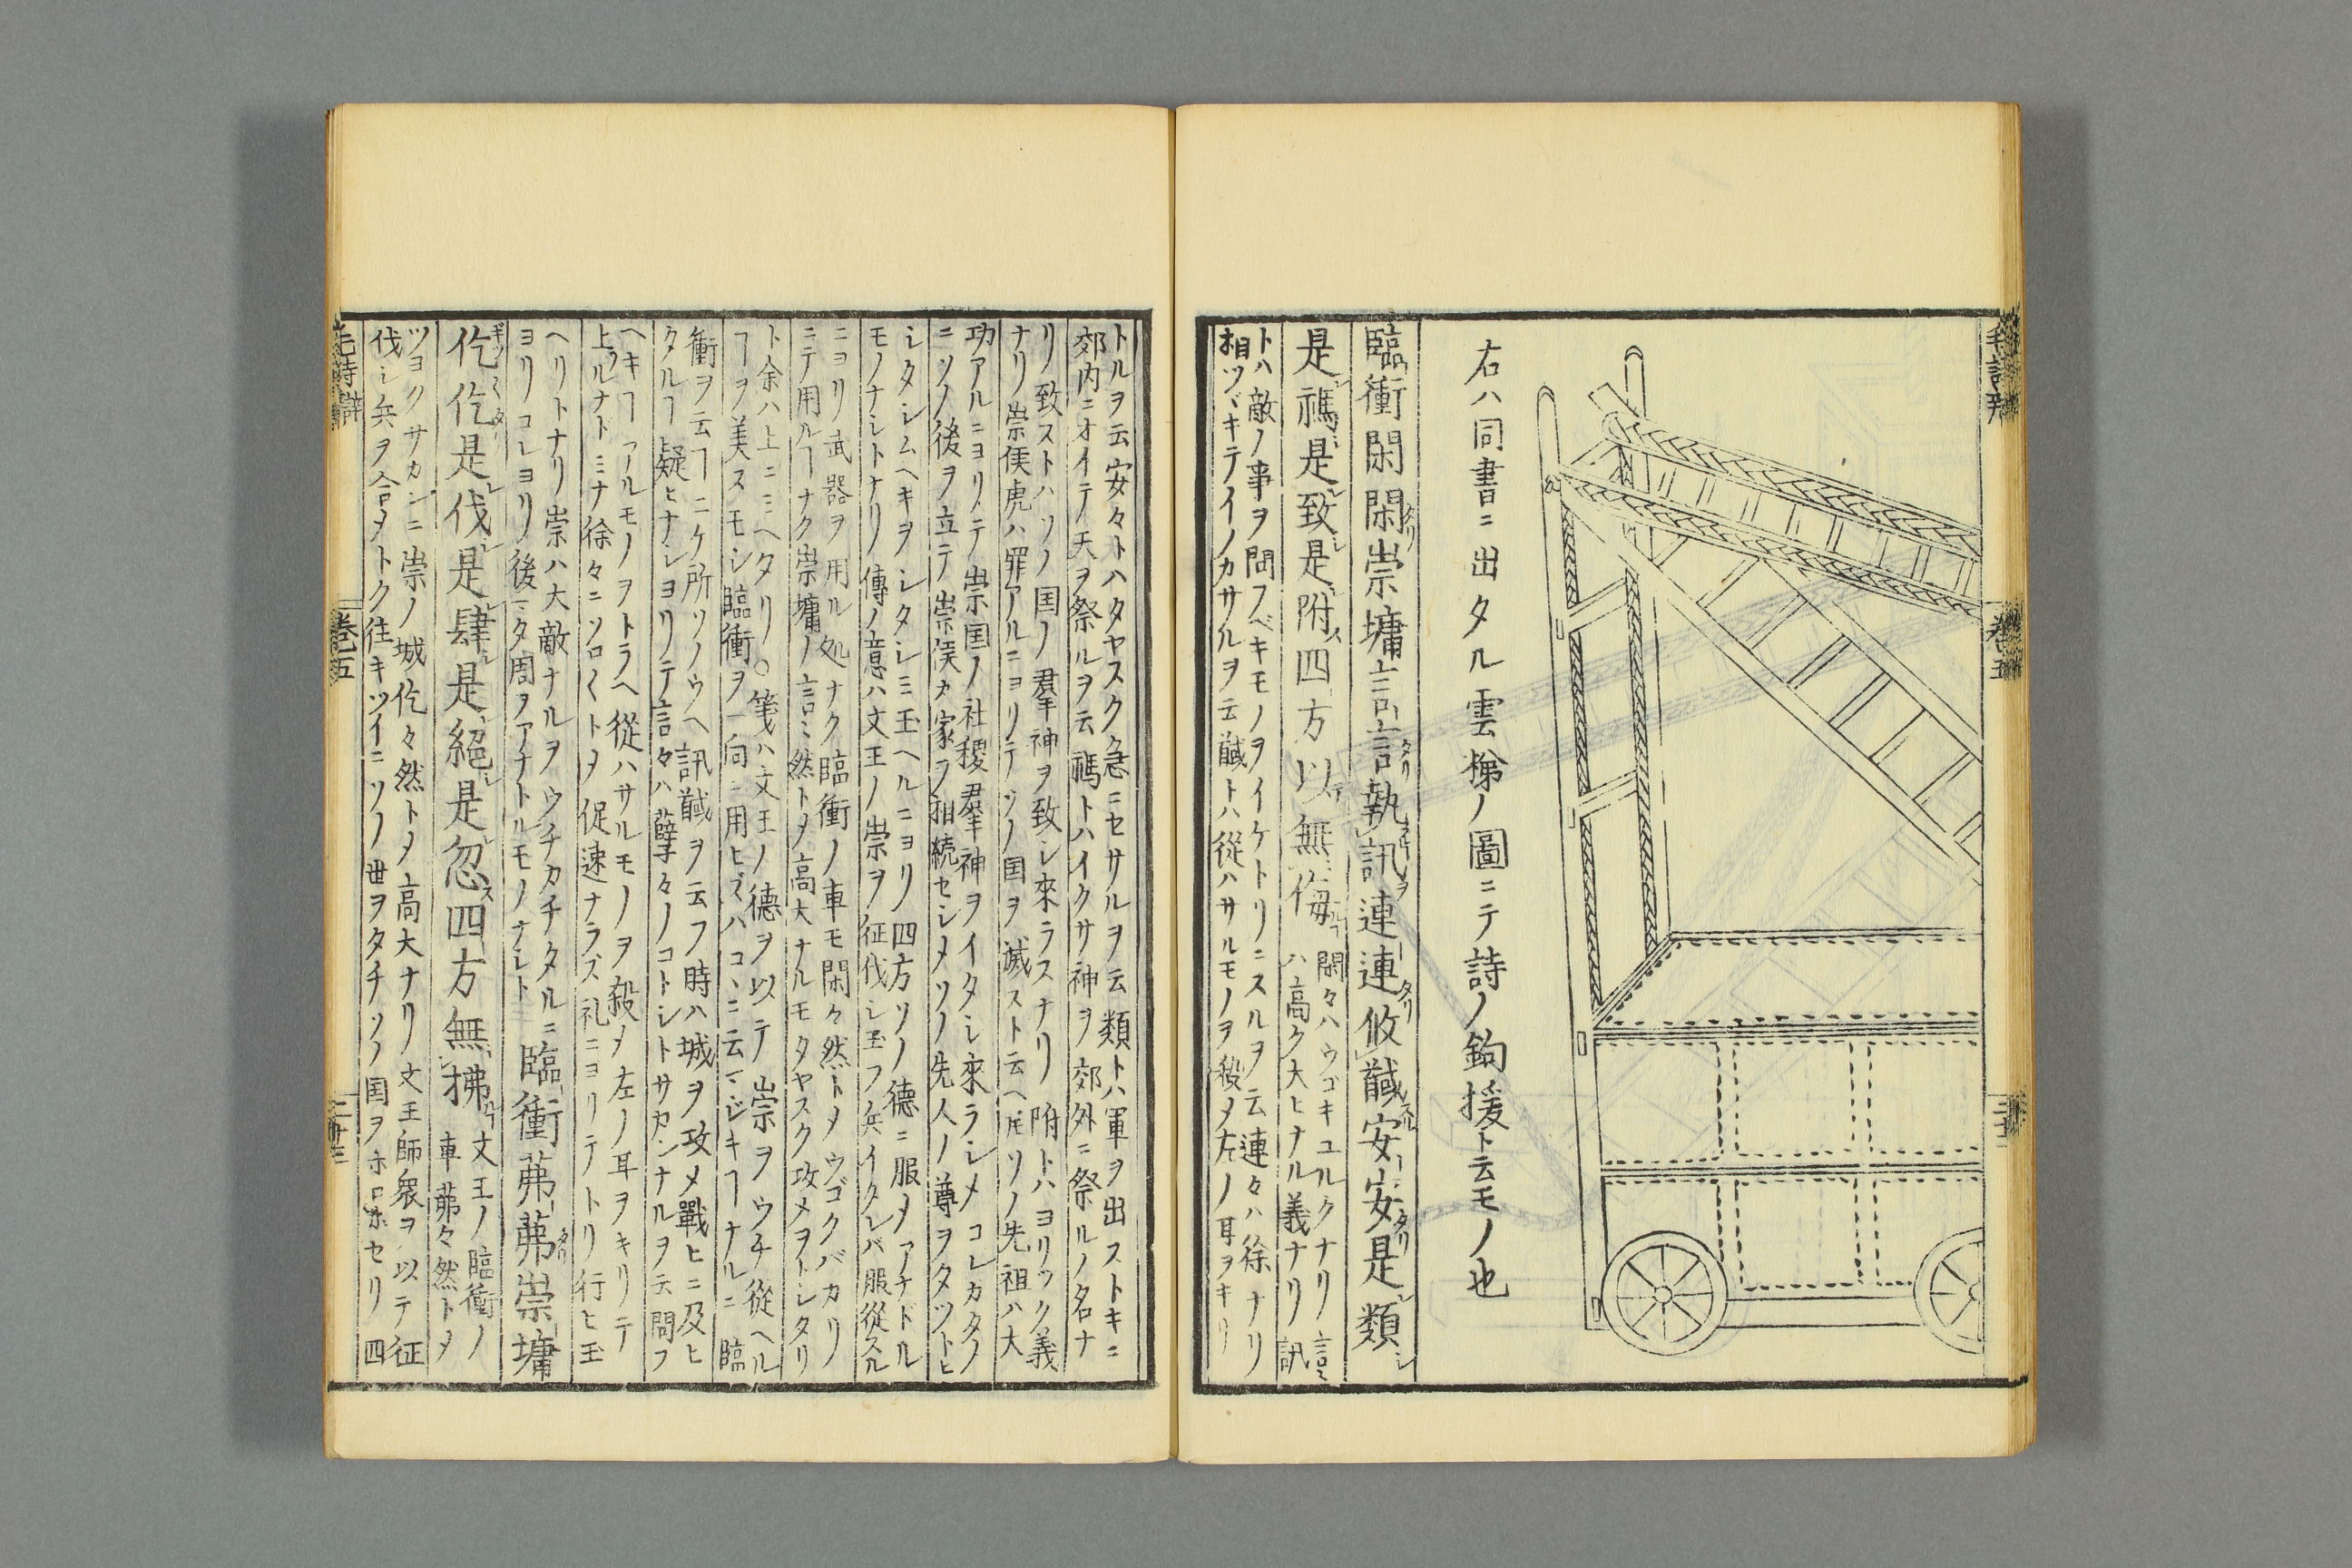 右ハ同書ニ出タル雲梯ノ圖ニテ詩ノ鉤援ト云モノ也
臨衝閑閑崇墉言言執訊連連攸馘安安是類
是禡是致是附四方以無侮
閑々ハウゴキユルクナリ言言
ハ高ク大ヒナル義ナリ訊
トハ敵ノ事ヲ問フベキモノヲイケトリニスルヲ云連々ハ徐ナリ
相ツヾキテイノカサルヲ云馘トハ從ハサルモノヲ殺メ左ノ耳ヲキリ
トルヲ云安々トハタヤスク急ニセサルヲ云類トハ軍ヲ出ストキニ
郊内ニオイテ天ヲ祭ルヲ云禡トハイクサ神ヲ郊外ニ祭ルノ名ナ
リ致ストハソノ国ノ羣神ヲ致シ來ラスナリ附トハヨリツク義
ナリ崇侯虎ハ罪アルニヨリテソノ国ヲ滅スト云ヘ𪜈ソノ先祖ハ大
功アルニヨリテ崇国ノ社稷羣神ヲイタシ來ラシメコレカタノ
ニソノ後ヲ立テ崇侯カ家ヲ相続セシメソノ先人ノ尊ヲタツトヒ
シタシムヘキヲシタシミ玉ヘルニヨリ四方ソノ德ニ服メアナドル
モノナシトナリ傳ノ意ハ文王ノ崇ヲ征伐シ玉フ兵イタレバ服從スル
ニヨリ武器ヲ用ル処ナク臨衝ノ車モ閑々然トメウゴクバカリ
ニテ用ルヿナク崇墉ノ言言然トメ高大ナルモタヤスク攻メヲトシタリ
ト余ハ上ニミヘタリ○箋ハ文王ノ德ヲ以テ崇ヲウチ從ヘル
ヿヲ美スモシ臨衝ヲ一向ニ用ヒズハコヽニ云マジキヿナルニ臨
衝ヲ云ヿ二ケ所ソノウヘ訊馘ヲ云フ時ハ城ヲ攻メ戰ヒニ及ヒ
タルヿ疑ヒナシヨリテ言々ハ孽々ノコトシトサカンナルヲ云問フ
ヘキヿアルモノヲトラヘ從ハサルモノヲ殺メ左ノ耳ヲキリテ
上ルナトミナ徐々ニソロ〱トメ促速ナラズ礼ニヨリテトリ行ヒ玉
ヘリトナリ崇ハ大敵ナルヲウチカチタルニ
ヨリコレヨリ後マタ周ヲアナトルモノナシト
臨衝茀茀崇墉
仡仡是伐是肆是絕是忽四方無拂
文王ノ臨衝ノ
車茀々然トメ
ツヨクサカンニ崇ノ城仡々然トメ高大ナリ文王師衆ヲ以テ征
伐シ兵ヲ合メトク往キツイニソノ世ヲタチソノ国ヲホロホセリ四
毛詩辯
巻五
二十三